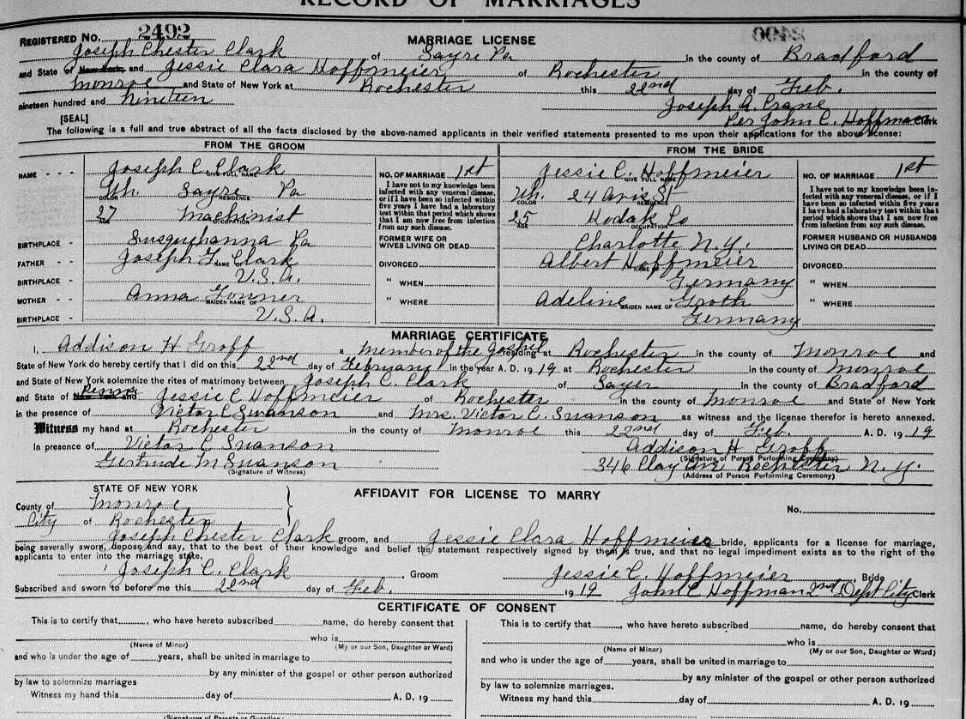 RECORD OF MARRIAGES
REGISTERED NO. 2492
MARRIAGE LICENSE
Joseph Chester Clark of Sayre Pa in the county of Bradford
and State of New York and Jessie Clara Hoffmeier of Rochester in the county of
Monroe and State of New York at Rochester this 22nd day of Feb.
nineteen hundred and nineteen Joseph A. Crane
[SEAL] Per John C. Hoffman Clerk
The following is a full and true abstract of all the facts disclosed by the above-named applicants in their verified statements presented to me upon their applications for the above license:
FROM THE GROOM
NAME - - - Joseph C. Clark
Wh. Sayre Pa
COLOR RESIDENCE
27 Machinist
BIRTHPLACE - Susquehanna Pa
FATHER - - Joseph F. Clark
BIRTHPLACE - U.S.A.
MOTHER - - Anna Fonner
MAIDEN NAME OF
BIRTHPLACE - U.S.A.
NO. OF MARRIAGE 1st
I have not to my knowledge been
infected with any venereal disease,
or if I have been so infected within
five years I have had a laboratory
test within that period which shows
that I am now free from infection
from any such disease.
FORMER WIFE OR
WIVES LIVING OR DEAD
DIVORCED
" WHEN
" WHERE
FROM THE BRIDE
Jessie C. Hoffmeier
GIVE FULL NAME
Wh. 24 Avis St
COLOR RESIDENCE
25 Kodak Co
AGE OCCUPATION
Charlotte N.Y.
Albert Hoffmeier
Germany
Adeline Groth
MAIDEN NAME OF
Germany
NO. OF MARRIAGE 1st
I have not to my knowledge been in-
fected with any venereal disease, or
if I have been so infected within five
years I have had a laboratory test within that
period which shows that I am now free
from infection from any such disease.
FORMER HUSBAND OR HUSBANDS
LIVING OR DEAD
DIVORCED
" WHEN
" WHERE
MARRIAGE CERTIFICATE
I, Addison H Groff a Member of the Gospel residing at Rochester in the county of Monroe and
State of New York do hereby certify that I did on this 22nd day of February in the year A. D. 1919 at Rochester in the county of Monroe
and State of New York solemnize the rites of matrimony between Joseph C. Clark of Sayer in the county of Bradford
and State of New York Penna and Jessie C Hoffmeier of Rochester in the county of Monroe and State of New York
in the presence of Victor C Swanson and Mrs. Victor C. Swanson as witness and the license therefor is hereto annexed.
Witness my hand at Rochester in the county of Monroe this 22nd day of Feb. A. D. 1919
In presence of Victor C Swanson Addison H Groff
(Signature of Person Performing Ceremony)
Gertrude M Swanson 346 Clay Av Rochester N.Y.
(Signature of Witness) (Address of Person Performing Ceremony)
STATE OF NEW YORK
AFFIDAVIT FOR LICENSE TO MARRY
County of Monroe No.
City of Rochester
Joseph Chester Clark groom, and Jessie Clara Hoffmeier bride, applicants for a license for marriage,
being severally sworn, depose and say, that to the best of their knowledge and belief the statement respectively signed by them is true, and that no legal impediment exists as to the right of the
applicants to enter into the marriage state.
Joseph C. Clark, Groom Jessie C. Hoffmeier Bride
Subscribed and sworn to before me this 22nd day of Feb. 1919 John C Hoffman 2nd Dept City Clerk
CERTIFICATE OF CONSENT
This is to certify that, who have hereto subscribed name, do hereby consent that
who is
(Name of Minor) (My or our Son, Daughter or Ward)
and who is under the age of years, shall be united in marriage to
by any minister of the gospel or other person authorized
by law to solemnize marriages
Witness my hand this day of A. D. 19
(Signature of Parents or Guardian)
This is to certify that, who have hereto subscribed name, do hereby consent that
who is
(Name of Minor) (My or our Son, Daughter or Ward)
and who is under the age of years, shall be united in marriage to
by any minister of the gospel or other person authorized
by law to solemnize marriages.
Witness my hand this day of A. D. 19